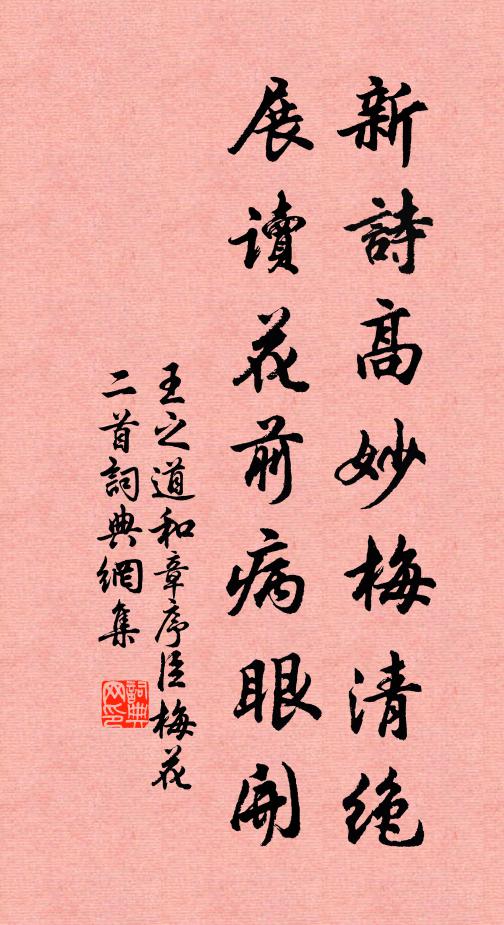 新詩高妙梅清絶
展讀花前病眼開
王之道和章序臣梅花
二首詞典網集
詞典
网印